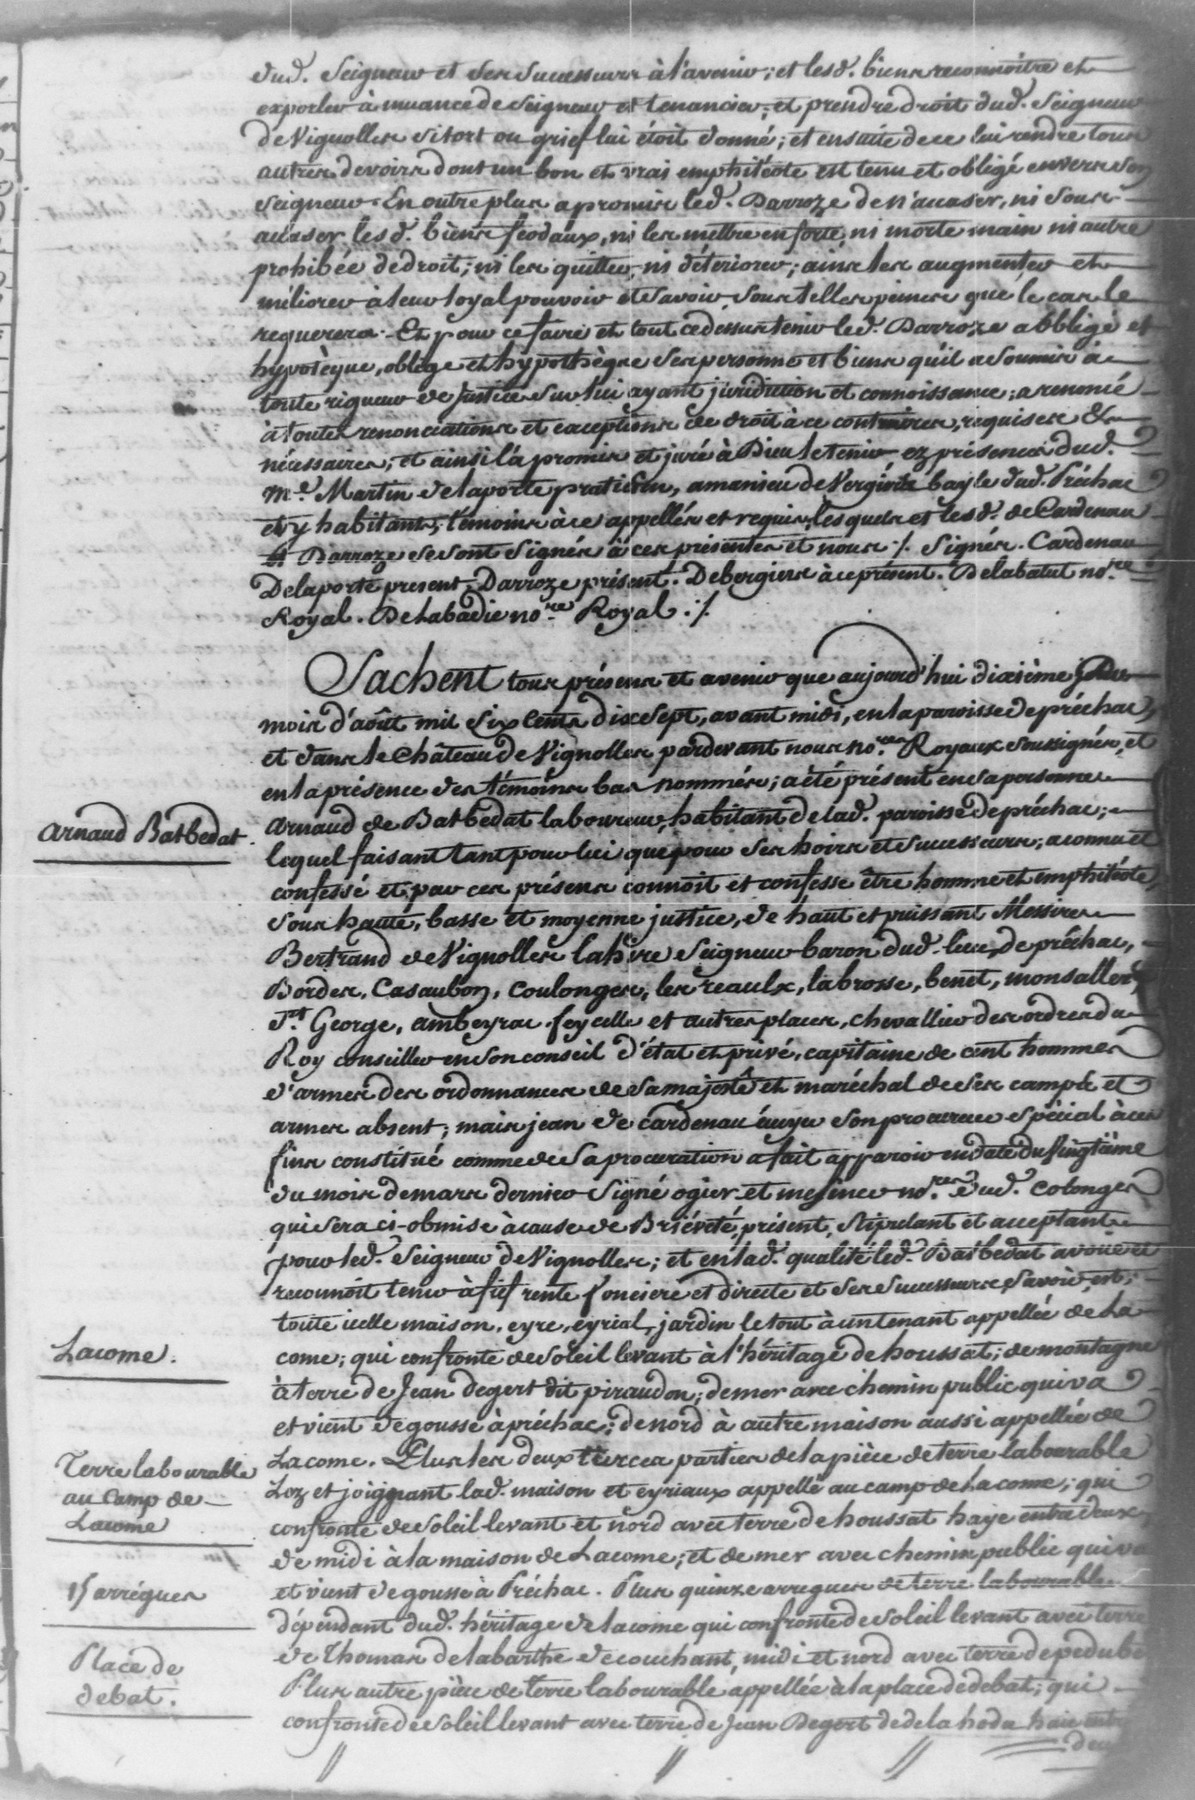 dud. Seigneur et ses successeurs à l'avenir; et lesd. biens reconnoitre et
exporler à muance de Seigneur et tenancier; et prendre droit dud. Seigneur
de Vignolles si tort ou grief lui étoit donné; et ensuite de ce lui rendre tous
autres devoirs dont un bon et vrai emphitéote est tenu et obligé envers son
seigneur. En outre plus a promis led. Darroze de n'acaser, ni sous
acaser lesd. biens féodaux, ni les mettre en forte, ni morte main ni autre
prohibée de droit; ni les quitter, ni deteriorer; ains les augmenter et
méliorer à leur loyal pouvoir et savoir sous telles peines que le cas le
requerera. Et pour ce faire et tout ce dessus tenir led. Darroze a obligé et
hypotèque, oblige et hypothèque ses personne et biens qu'il a soumis à
toute rigueur de justice sur lui ayant juridiction et connoissance; a renoncé
à toutes renonciations et exceptions de droit à ce contraires, requises &
nécessaires; et ainsi l'a promis et juré à Dieu le tenir ez présence dud.
Me. Martin de laporte praticien, amanieu de Vergers bayle dud. Préchac
et y habitans, témoins à ce appellés et requis, lesquels et lesd. de Cardenau
et Darroze se sont signés à ces présentes et nous ./. Signés. Cardenau
Delaporte present, Darroze présent. Debergiers à ce présent. Delabatut nore.
Royal. Delabadie nore. Royal ./.
Sachent tous présens et avenir que aujourd'hui dixième jour du
mois d'août mil six cents dix sept, avant midi, en la paroisse de préchac,
et dans le Château de Vignolles pardevant nous nores. Royaux soussignés, et
en la présence des témoins bas nommés; a été présent en sa personne
Arnaud Batbedat.
arnaud de Batbedat laboureur, habitant de lad. paroisse de préchac;
lequel faisant tant pour lui que pour ses hoirs et successeurs, a connu et
confessé et par ces présens connoit et confesse être homme et emphitéote,
sous haute, basse et moyenne justice, de haut et puissant Messire
Bertrand de Vignolles lahire Seigneur baron dud. lieu de préchac,
Bordes, Casaubon, Coulonges, les reaulx, labrosse, benet, monsalles,
St. George, ambeyrac, feycelle et autres places, chevallier des ordres du
Roy conseiller en son conseil d'état et privé, capitaine de cent hommes
d'armes des ordonnances de sa majesté et maréchal de ses camps et
armes absent; mais jean de cardenau écuyer son procureur spécial à ces
fins constitué comme de sa procuration a fait apparoir en date du vingtième
du mois de mars dernier signé ogier et mesnier nores. dud. Colonges
qui sera ci-obmise à cause de Brièveté, présent, stipulant et acceptant
pour led. Seigneur de Vignolles; et en lad. qualité led. Batbedat avoue et
reconnoit tenir à fief rente foncière et directe et ses successeurs, savoir, est;
toute icelle maison, eyre, eyrial, jardin le tout à un tenant appellée de La
Lacome.
come; qui confronte de soleil levant à l'héritage de houssat; de montagne
à terre de Jean degert dit piraudon; de mer avec chemin public qui va
et vient de gousse à préchac; de nord à autre maison aussi appellée de
Terre labourable
au Camp de
Lacome
Lacome. Plus les deux tierces parties de la pièce de terre labourable
Loz et joignant lad. maison et eyriaux appellé au camp de Lacome; qui
confronte de soleil levant et nord avec terre de houssat haye entre deux,
de midi à la maison de Lacome; et de mer avec chemin public qui va
15 arrégues
et vient de gousse à Préchac. Plus quinze arregues de terre labourable
dépendant dud. héritage de lacome qui confronte de soleil levant avec terre
Place de
debat.
de Thomas de labarthe de couchant, midi et nord avec terre de pedube
Plus autre pièce de terre labourable appellée à la place de debat; qui
confronte de soleil levant avec terre de Jean Degert de de la hoda haie entre
deux